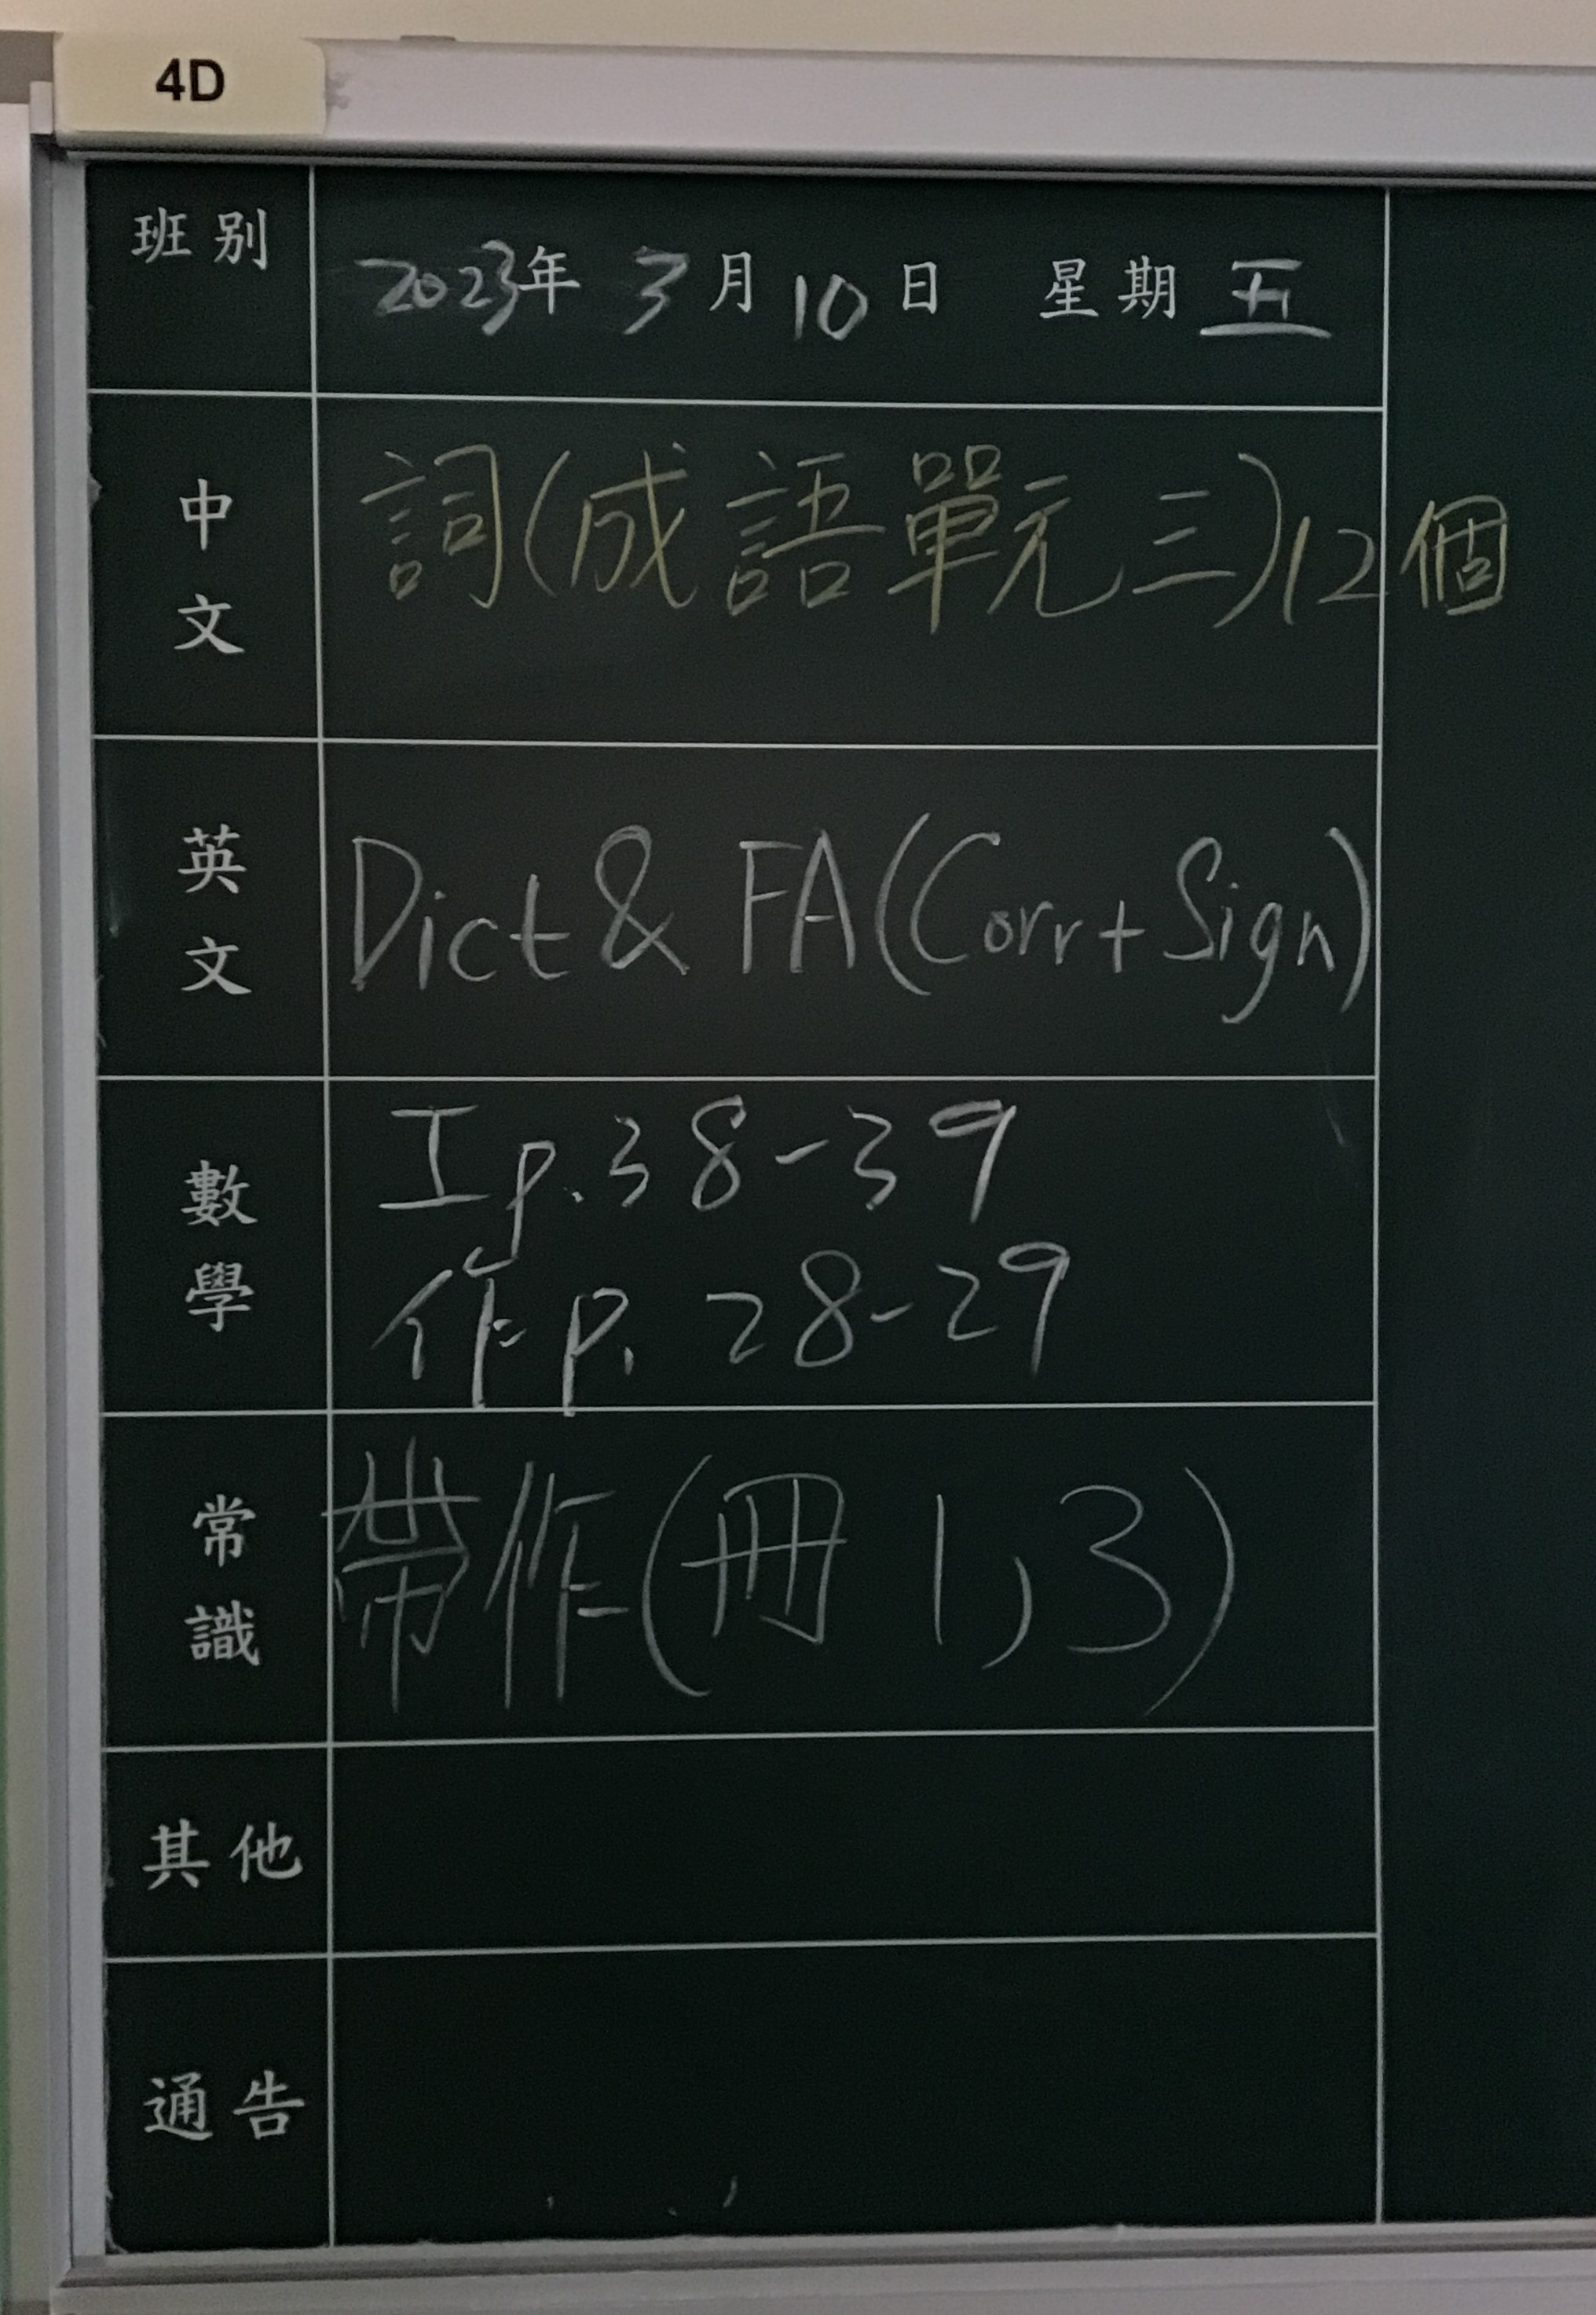 4D
班別
2023年 3月10日 星期五
中文
詞(成語單元三)12個
英文
Dict & FA(Corr+Sign)
數學
工p.38-39
作p.28-29
常識
帶作(冊1,3)
其他
通告